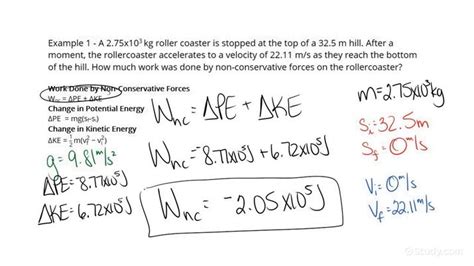 Example 1 - A 2.75x10³ kg roller coaster is stopped at the top of a 32.5 m hill. After a
moment, the rollercoaster accelerates to a velocity of 22.11 m/s as they reach the bottom
of the hill. How much work was done by non-conservative forces on the rollercoaster?
Work Done by Non-Conservative Forces
Wₙc = ΔPE + ΔKE
Change in Potential Energy
ΔPE = mg(sf-si)
Change in Kinetic Energy
ΔKE = ½m(vf² - vi²)
g = 9.81 m/s²
ΔPE = -8.77x10⁵J
ΔKE = 6.72x10⁵J
Wnc = ΔPE + ΔKE
Wnc = -8.77x10⁵J + 6.72x10⁵J
Wnc = -2.05x10⁵J
m = 2.75x10³kg
Si = 32.5m
Sf = 0m
Vi = 0m/s
Vf = 22.11m/s
Study.com